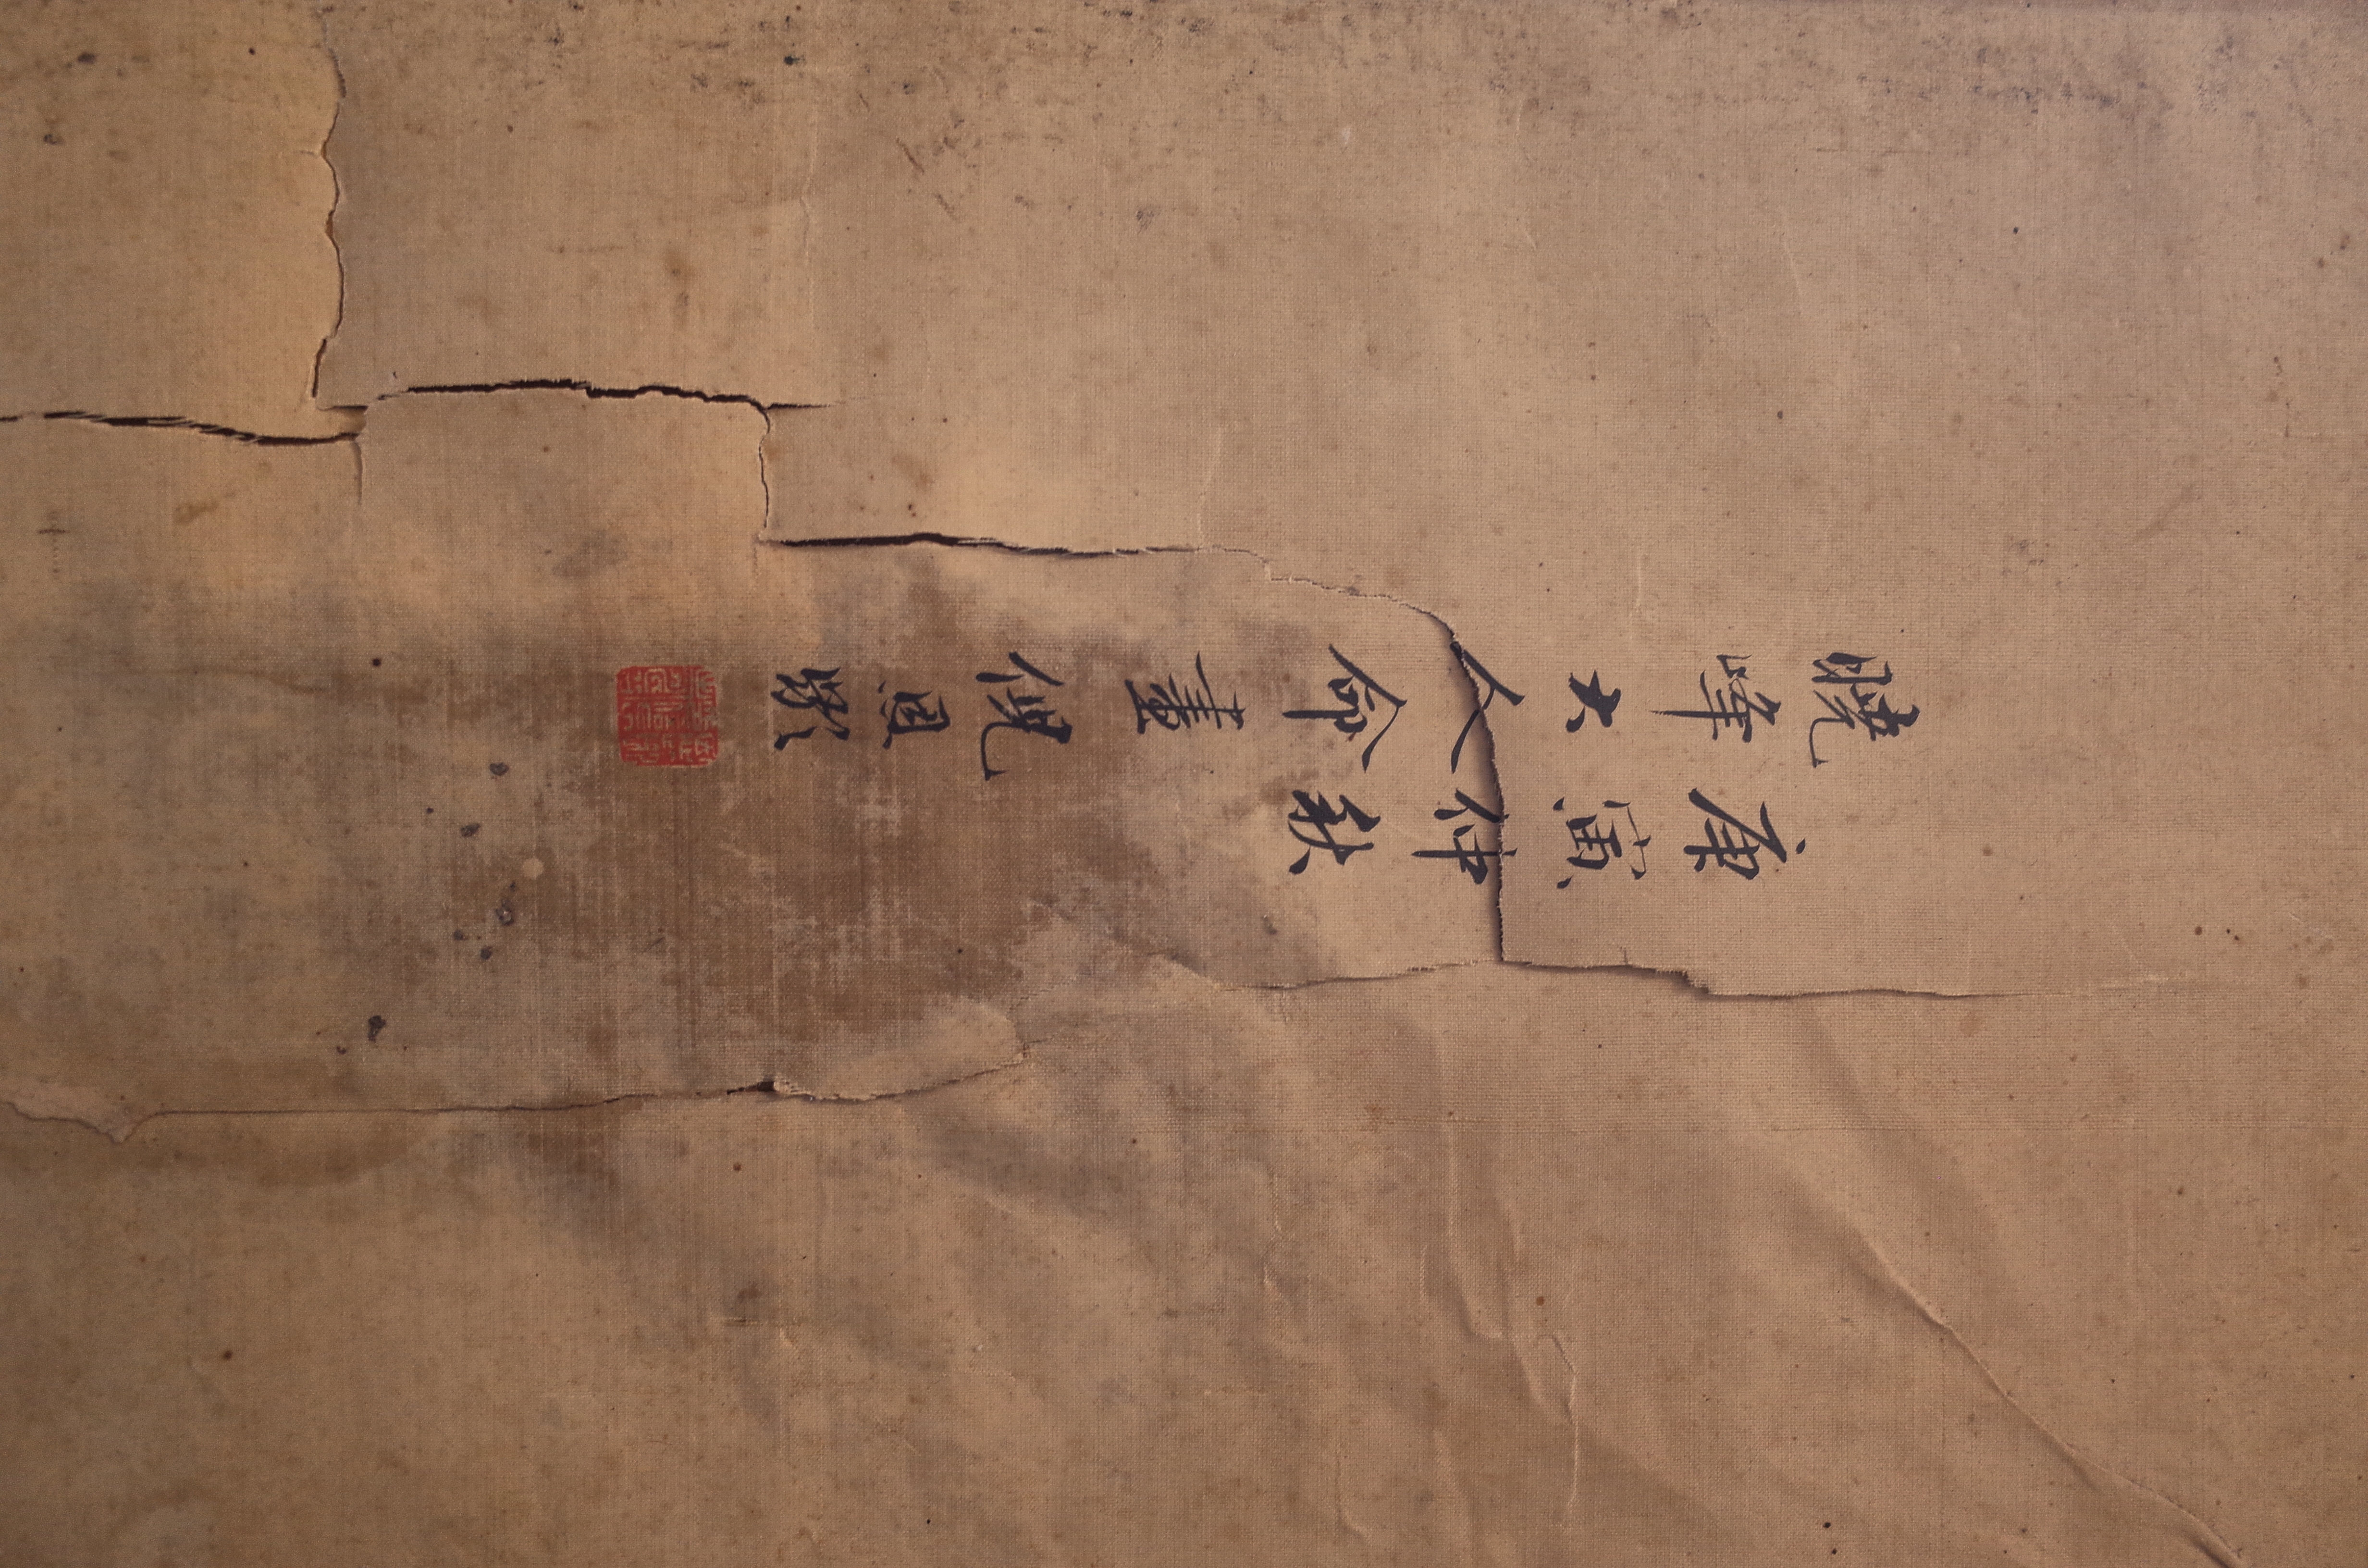 庚寅仲秋
曉峰大人命畫倪恩齡